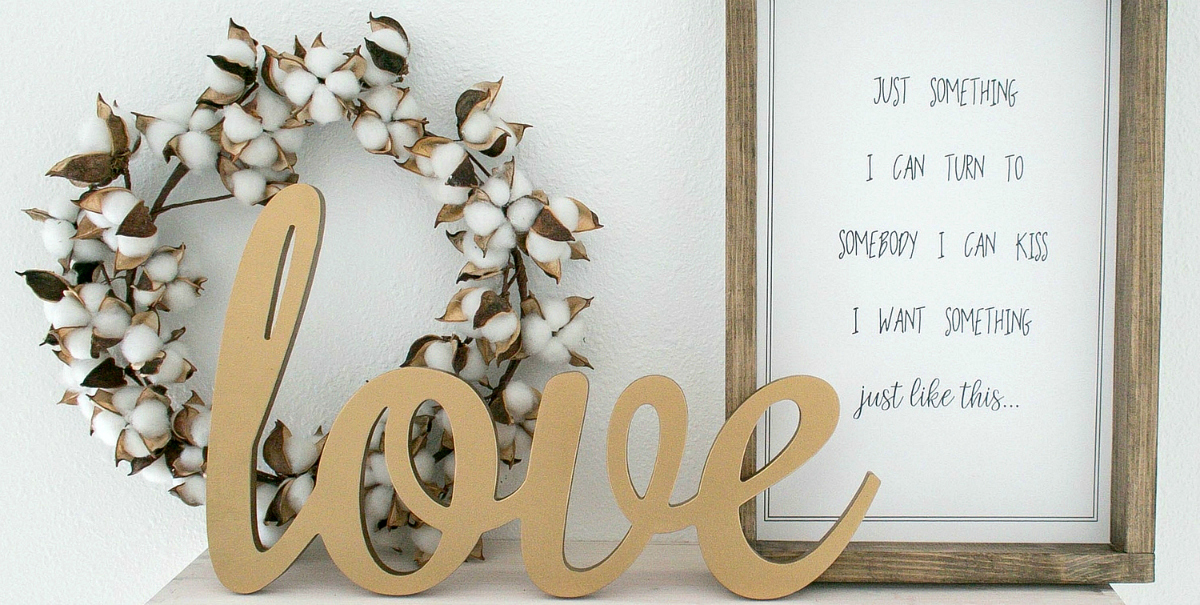 love
JUST SOMETHING
I CAN TURN TO
SOMEBODY I CAN KISS
I WANT SOMETHING
just like this...